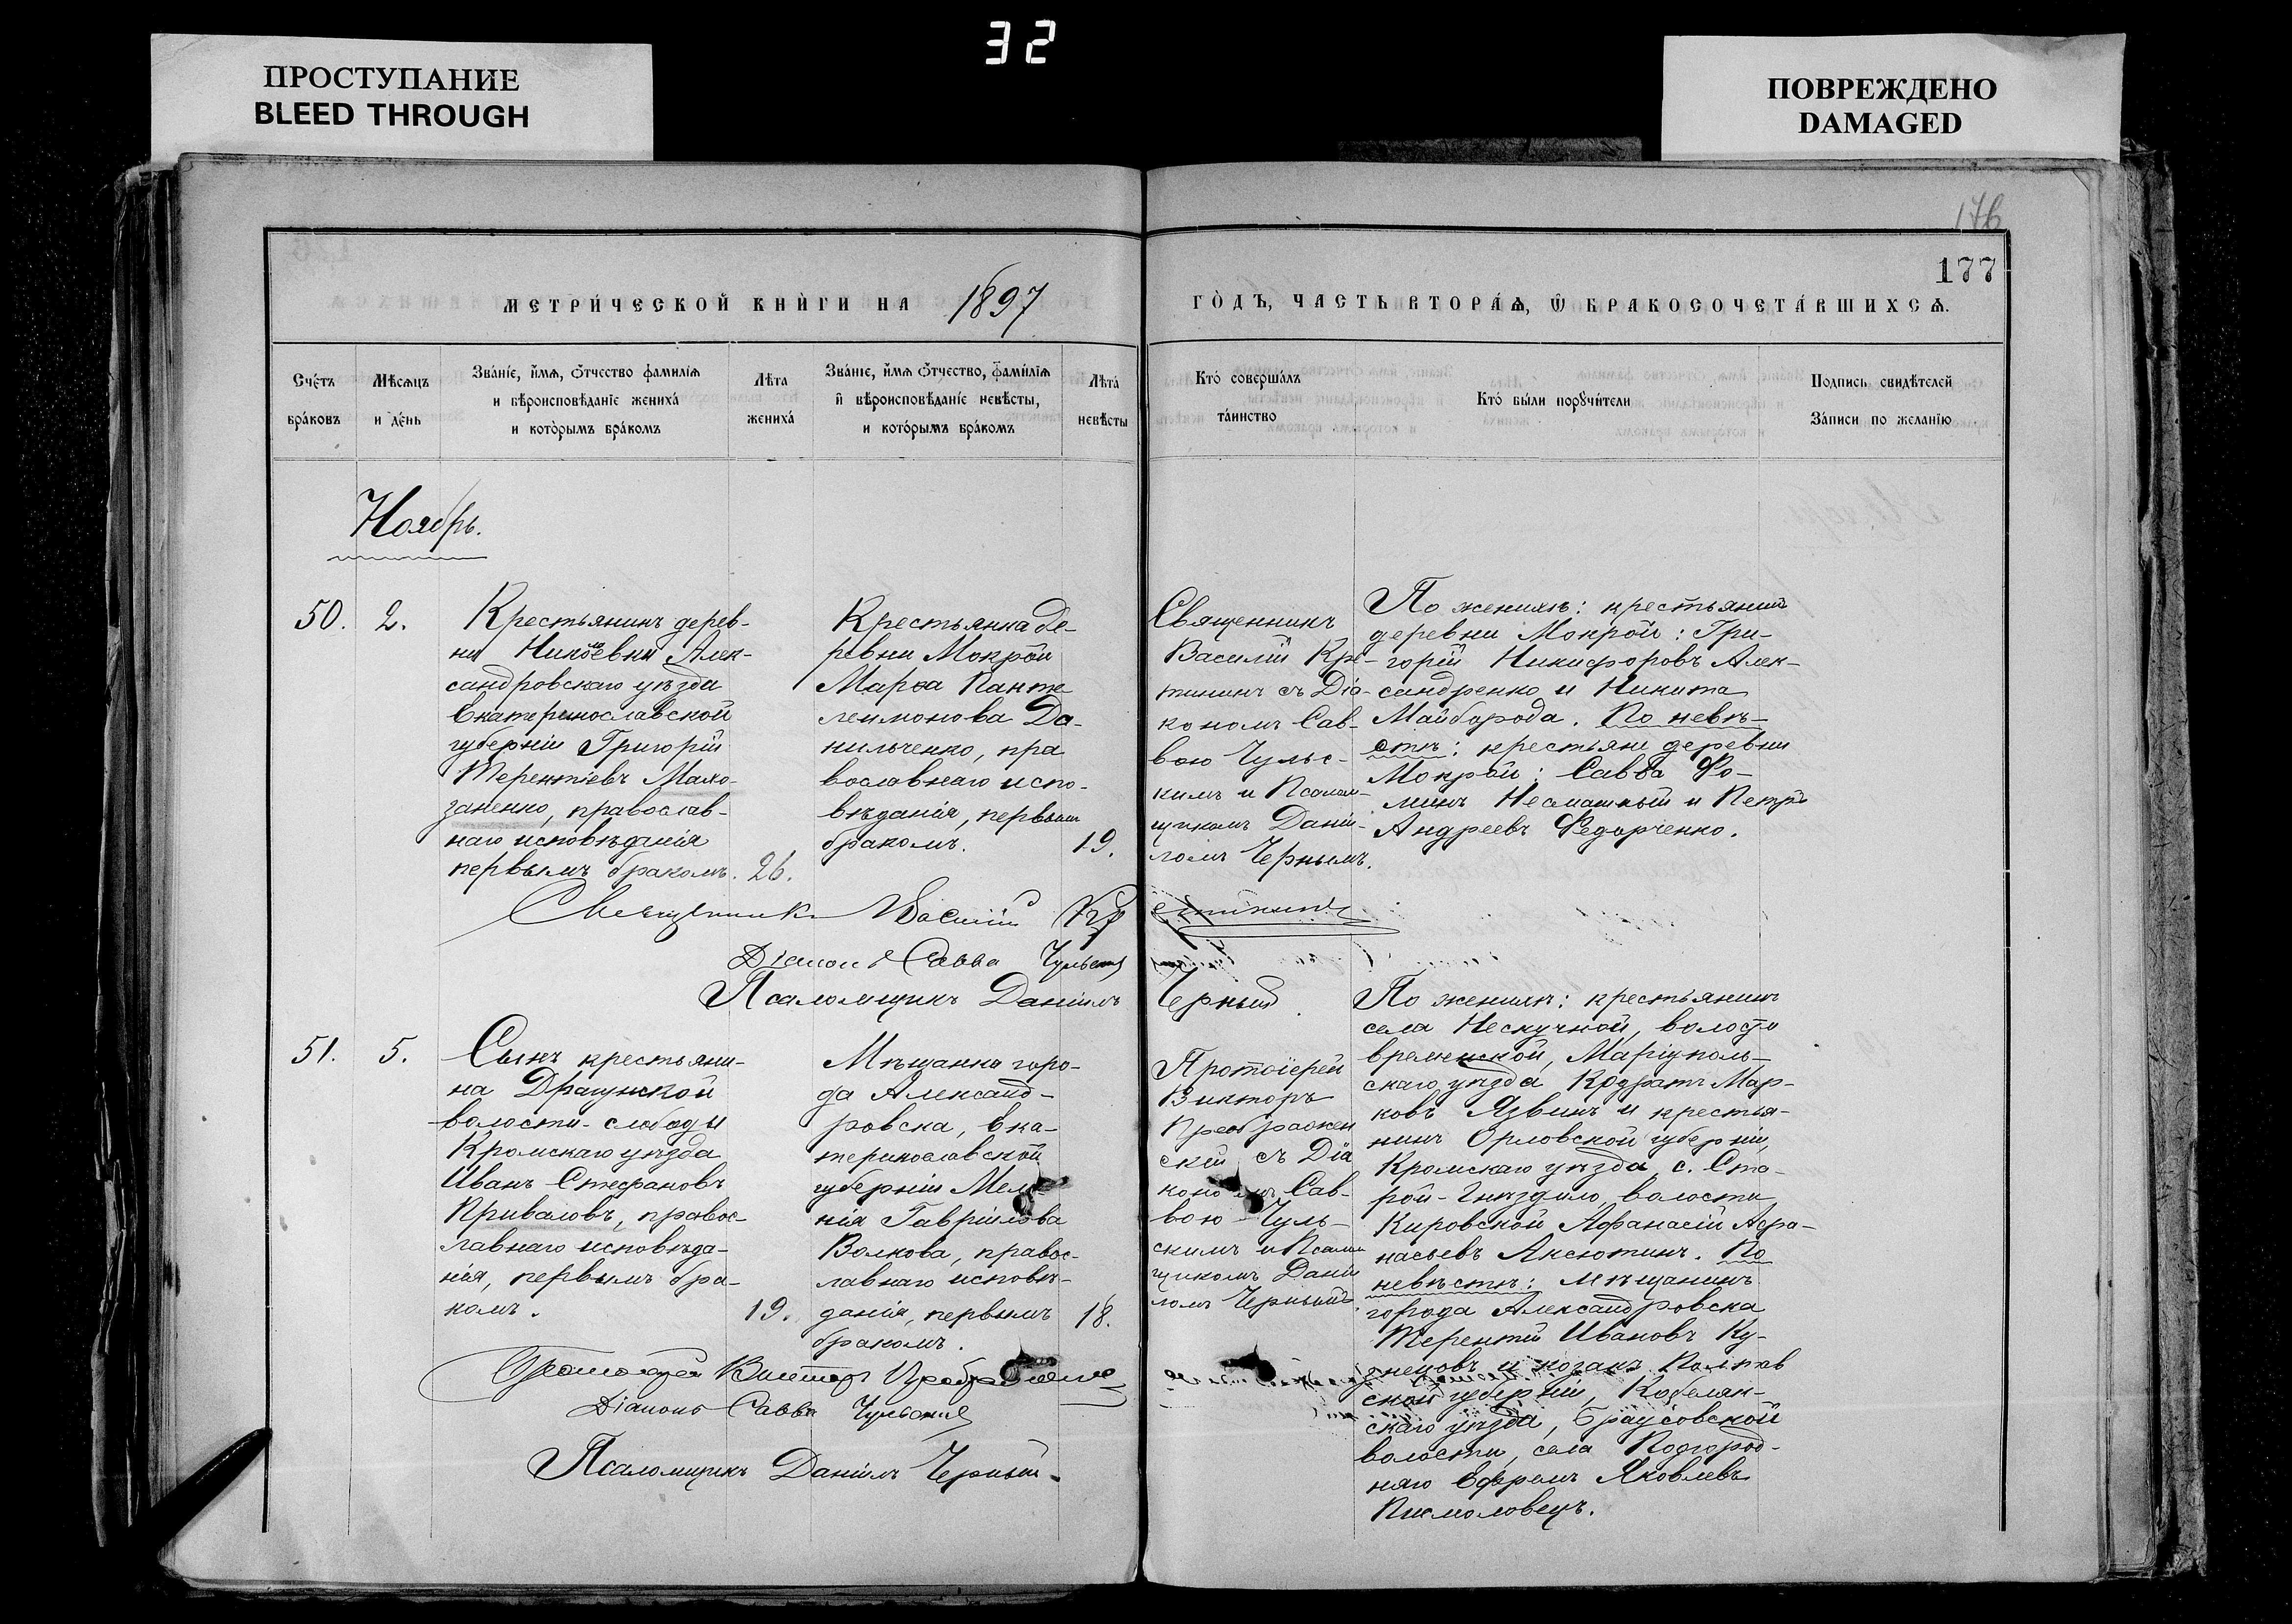 32
ПРОСТУПАНИЕ
BLEED THROUGH
ПОВРЕЖДЕНО
DAMAGED
176
177
МЕТРИ́ЧЕСКОЙ КНИ́ГИ НА 1897
ГО́ДЪ, ЧАСТЬ ВТОРА́Ѧ, Ѿ БРАКОСОЧЕТА́ВШИХСѦ.
Сче́тъ
бра́ковъ
Мѣ́сѧцъ
и де́нь
Зва́нїе, и́мѧ, ѻ҆́тчество фамилїѧ
и вѣроисповѣ́данїе жениха́
и кото́рымъ бра́комъ
Лѣ́та
жениха́
Зва́нїе, и́мѧ ѻ҆́тчество, фами́лїѧ
и҆ вѣроисповѣ́данїе невѣ́сты,
и кото́рымъ бра́комъ
Лѣ́та
невѣ́сты
Кто́ соверша́лъ
та́инство
Кто́ бы́ли порꙋчи́тели
Подпись свидѣ́телей
За́писи по жела́нїю
Ноябрь.
50.
2.
Крестьянинъ дерев-
ни Алек-
сандровскаго уѣзда
Екатеринославской
губерніи Григорій
Терентіевъ Махо-
заненко, православ-
наго исповѣданія
первымъ бракомъ.
26.
Крестьянка де-
ревни Мокрой
Марѳа Панте
леимонова Да-
нильченко, пра
вославнаго испо-
вѣданія, первым
бракомъ.
19.
Священникъ
Василій Кре-
тининъ съ Діа-
кономъ Сав-
вою Чульс-
кимъ и Псалом-
щикомъ Даніи-
ломъ Чернымъ.
По женихѣ: крестьяни
деревни Мокрой: Гри-
горій Никифоровъ Алек-
сандренко и Никита
Майборода. По невѣ-
стѣ: крестьяне деревни
Мокрой: Савва Фо-
минъ и Петръ
Андреевъ Федорченко.
Священникъ Василій Кретининъ
Діаконъ Савва Чульскій
Псаломщикъ Даніилъ Черный
51.
5.
Сынъ крестьяни-
на Драгунской
волости-слободы
Кромскаго уѣзда
Иванъ Стефановъ
Приваловъ, правос-
лавнаго исповѣда-
нія, первымъ бра-
комъ.
19.
Мѣщанка горо-
да Александ-
ровска, Ека-
теринославской
губерніи Мела-
нія Гавріилова
Волкова, правос-
лавнаго исповѣ-
данія, первымъ
бракомъ.
18.
Протоіерей
Викторъ
Преображен
скій съ Діа
кономъ Сав-
вою Чуль-
скимъ и Псалом
щикомъ Даніи
ломъ Черным
По женихѣ: крестьянинъ
села Нескучной, волости
времевской, Маріуполь-
скаго уѣзда Кодратъ Мар-
ковъ Язвинъ и крестья-
нинъ Орловской губерніи,
Кромскаго уѣзда, с. Ста-
рой-Гнѣздило, волости
Кировской Афанасій Афа-
насьевъ Аксютинъ. По
невѣстѣ: мѣщанинъ
города Александровска
Терентій Ивановъ Ку-
знецовъ и козакъ Полтав
ской губерніи, Кобеляк-
скаго уѣзда,
волости, села Подгород-
няго Ефремъ Яковлевъ
Писмоловецъ.
Протоіерей Викторъ Преображенскій
Діаконъ Савва Чульскій
Псаломщикъ Даніилъ Черный.